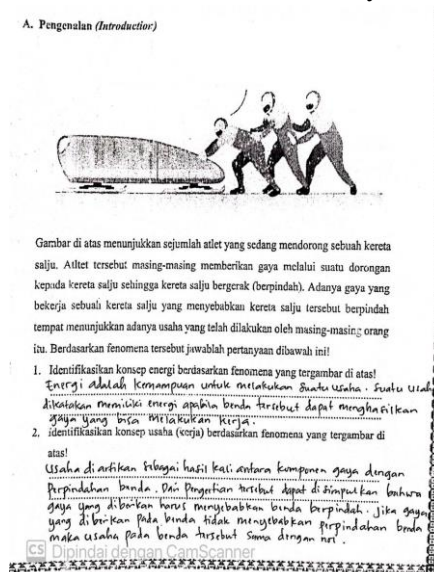 A. Pengenalan (Introductior)
Gambar di atas menunjukkan sejumlah atlet yang sedang mendorong sebuah kereta
salju. Atltet tersebut masing-masing memberikan gaya melalui suatu dorongan
kepada kereta salju sehingga kereta salju bergerak (berpindah). Adanya gaya yang
bekerja sebuah kereta salju yang menyebabkan kereta salju tersebut berpindah
tempat menunjukkan adanya usaha yang telah dilakukan oleh masing-masing orang
itu. Berdasarkan fenomena tersebut jawablah pertanyaan dibawah ini!
1. Identifikasikan konsep energi berdasarkan fenomena yang tergambar di atas!
Energi adalah kemampuan untuk melakukan suatu usaha. Suatu usaha
dikatakan memiliki energi apabila benda tersebut dapat menghasilkan
gaya yang bisa melakukan kerja.
2. identifikasikan konsep usaha (kerja) berdasarkan fenomena yang tergambar di
atas!
Usaha di artikan sebagai hasil kali antara komponen gaya dengan
Perpindahan benda. Dari Pengertian tersebut dapat di simpulkan bahwa
gaya yang diberikan harus menyebabkan benda berpindah. Jika gaya
yang diberikan pada benda tidak menyebabkan perpindahan benda
maka usaha pada benda tersebut sama dengan nol.
CS Dipindai dengan CamScanner